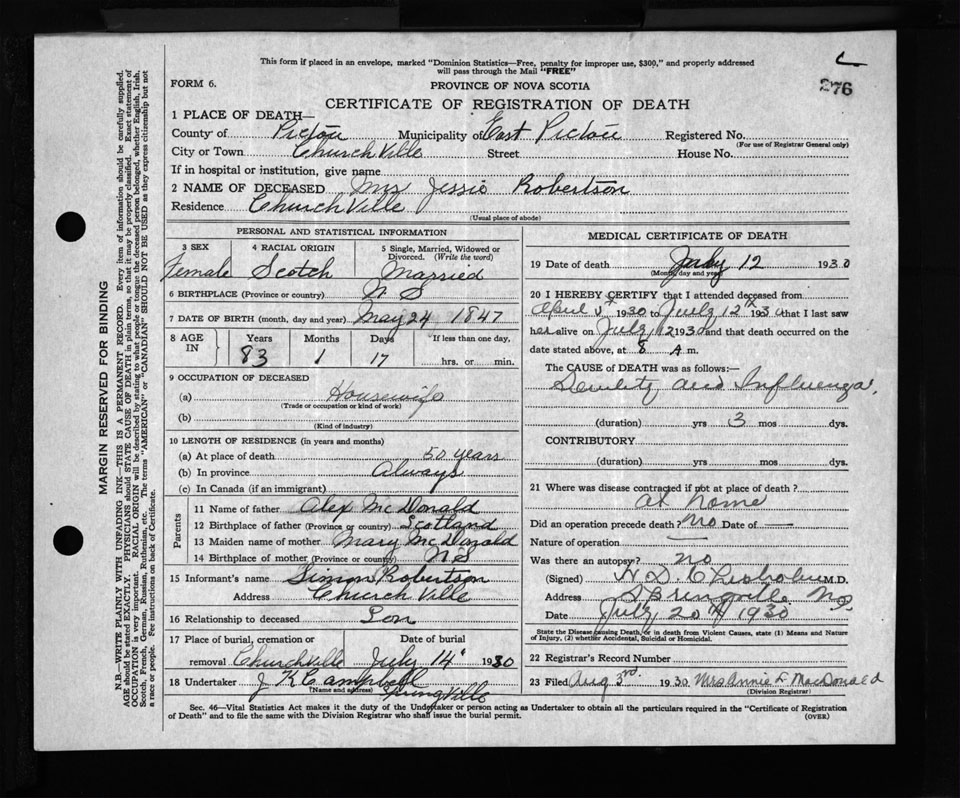 This form if placed in an envelope, marked "Dominion Statistics—Free, penalty for improper use, $300," and properly addressed
will pass through the Mail "FREE"
276
FORM 6.
PROVINCE OF NOVA SCOTIA
CERTIFICATE OF REGISTRATION OF DEATH
1 PLACE OF DEATH—
County of Pictou Municipality of East Pictou Registered No.
(For use of Registrar General only)
City or Town ChurchVille Street House No.
If in hospital or institution, give name
2 NAME OF DECEASED Mrs Jessie Robertson
Residence ChurchVille
(Usual place of abode)
PERSONAL AND STATISTICAL INFORMATION
3 SEX 4 RACIAL ORIGIN 5 Single, Married, Widowed or
Divorced. (Write the word)
Female Scotch Married
6 BIRTHPLACE (Province or country) N S
7 DATE OF BIRTH (month, day and year) May 24 1847
8 AGE IN Years Months Days If less than one day,
83 1 17 hrs. or min.
9 OCCUPATION OF DECEASED
(a) Housewife
(Trade or occupation or kind of work)
(b)
(Kind of industry)
10 LENGTH OF RESIDENCE (in years and months)
(a) At place of death 50 years
(b) In province Always
(c) In Canada (if an immigrant)
Parents
11 Name of father Alex McDonald
12 Birthplace of father (Province or country) Scotland
13 Maiden name of mother Mary McDonald
14 Birthplace of mother (Province or country) N S
15 Informant's name Simon Robertson
Address ChurchVille
16 Relationship to deceased Son
17 Place of burial, cremation or Date of burial
removal ChurchVille July 14" 1930
18 Undertaker J K Campbell
(Name and address) SpringVille
MEDICAL CERTIFICATE OF DEATH
19 Date of death July 12 1930
(Month, day and year)
20 I HEREBY CERTIFY that I attended deceased from
April 1930 to July 12 1930 that I last saw
her alive on July 12 1930 and that death occurred on the
date stated above, at 8 A m.
The CAUSE OF DEATH was as follows:—
and Influenza
(duration) yrs 3 mos dys.
CONTRIBUTORY
(duration) yrs mos dys.
21 Where was disease contracted if not at place of death?
at home
Did an operation precede death? No Date of —
Nature of operation —
Was there an autopsy? no
(Signed) H D Chisholm M.D.
Address Springville NS
Date July 20 1930
State the Disease causing Death, or in death from Violent Causes, state (1) Means and Nature
of Injury, (2) whether Accidental, Suicidal or Homicidal.
22 Registrar's Record Number
23 Filed Aug 3rd 1930 Mrs Annie L MacDonald
(Division Registrar)
Sec. 46—Vital Statistics Act makes it the duty of the Undertaker or person acting as Undertaker to obtain all the particulars required in the "Certificate of Registration
of Death" and to file the same with the Division Registrar who shall issue the burial permit.
(OVER)
MARGIN RESERVED FOR BINDING
N.B.—WRITE PLAINLY WITH UNFADING INK—THIS IS A PERMANENT RECORD. Every item of information should be carefully supplied.
AGE should be stated EXACTLY. PHYSICIANS should STATE CAUSE OF DEATH in plain terms, so that it may be properly classified. Exact statement of
OCCUPATION is very important. RACIAL ORIGIN will be described by stating to what people or tongue the deceased person belonged, whether English, Irish,
Scotch, French, German, Russian, Ruthenian, etc. The terms "AMERICAN" or "CANADIAN" SHOULD NOT BE USED as they express citizenship but not
a race or people. Fee instructions on back of Certificate.